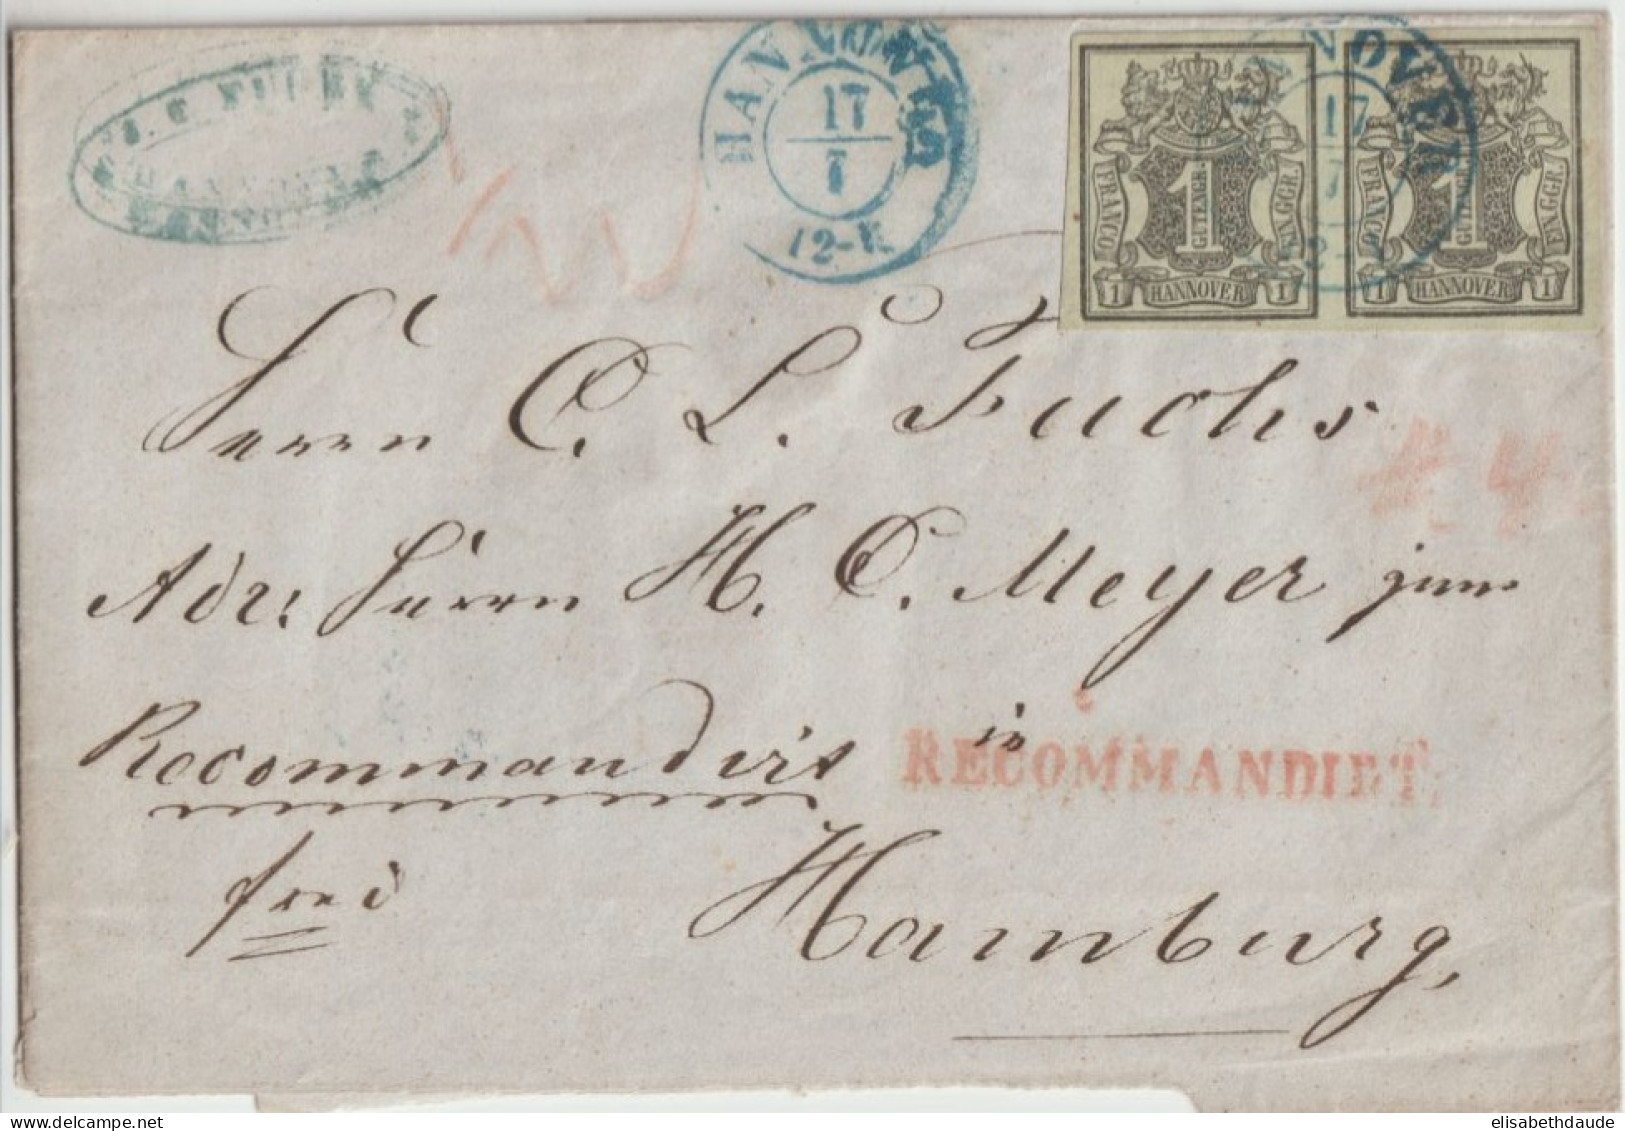 HANNOVER
17
7
12-
HANNOVER
17
7
FRANCO
1
GUTENGR.
EIN.GGR.
1 HANNOVER 1
FRANCO
1
GUTENGR.
EIN.GGR.
1 HANNOVER 1
Herrn C. L. Fuchs
Adr: Herrn H. C. Meyer junr
Recommandirt in
RECOMMANDIRT.
frei
Hamburg,
elisabethdaude